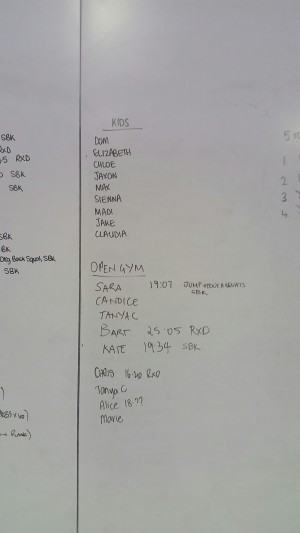 SBK
RXD
RXD
SBK
SBK
SBK
Back Squat, SBK
SBK
KIDS
DOM
ELIZABETH
CHLOE
JAXON
MAX
SIENNA
MADI
JAKE
CLAUDIA
OPEN GYM
SARA 19:07 JUMP
SBK
CANDICE
TANYA C
BART 25:05 RXD
KATE 19:34 SBK
CHRIS 16:20 RXD
Tanya C
Alice 18:??
Marie
5
1
2
3
4